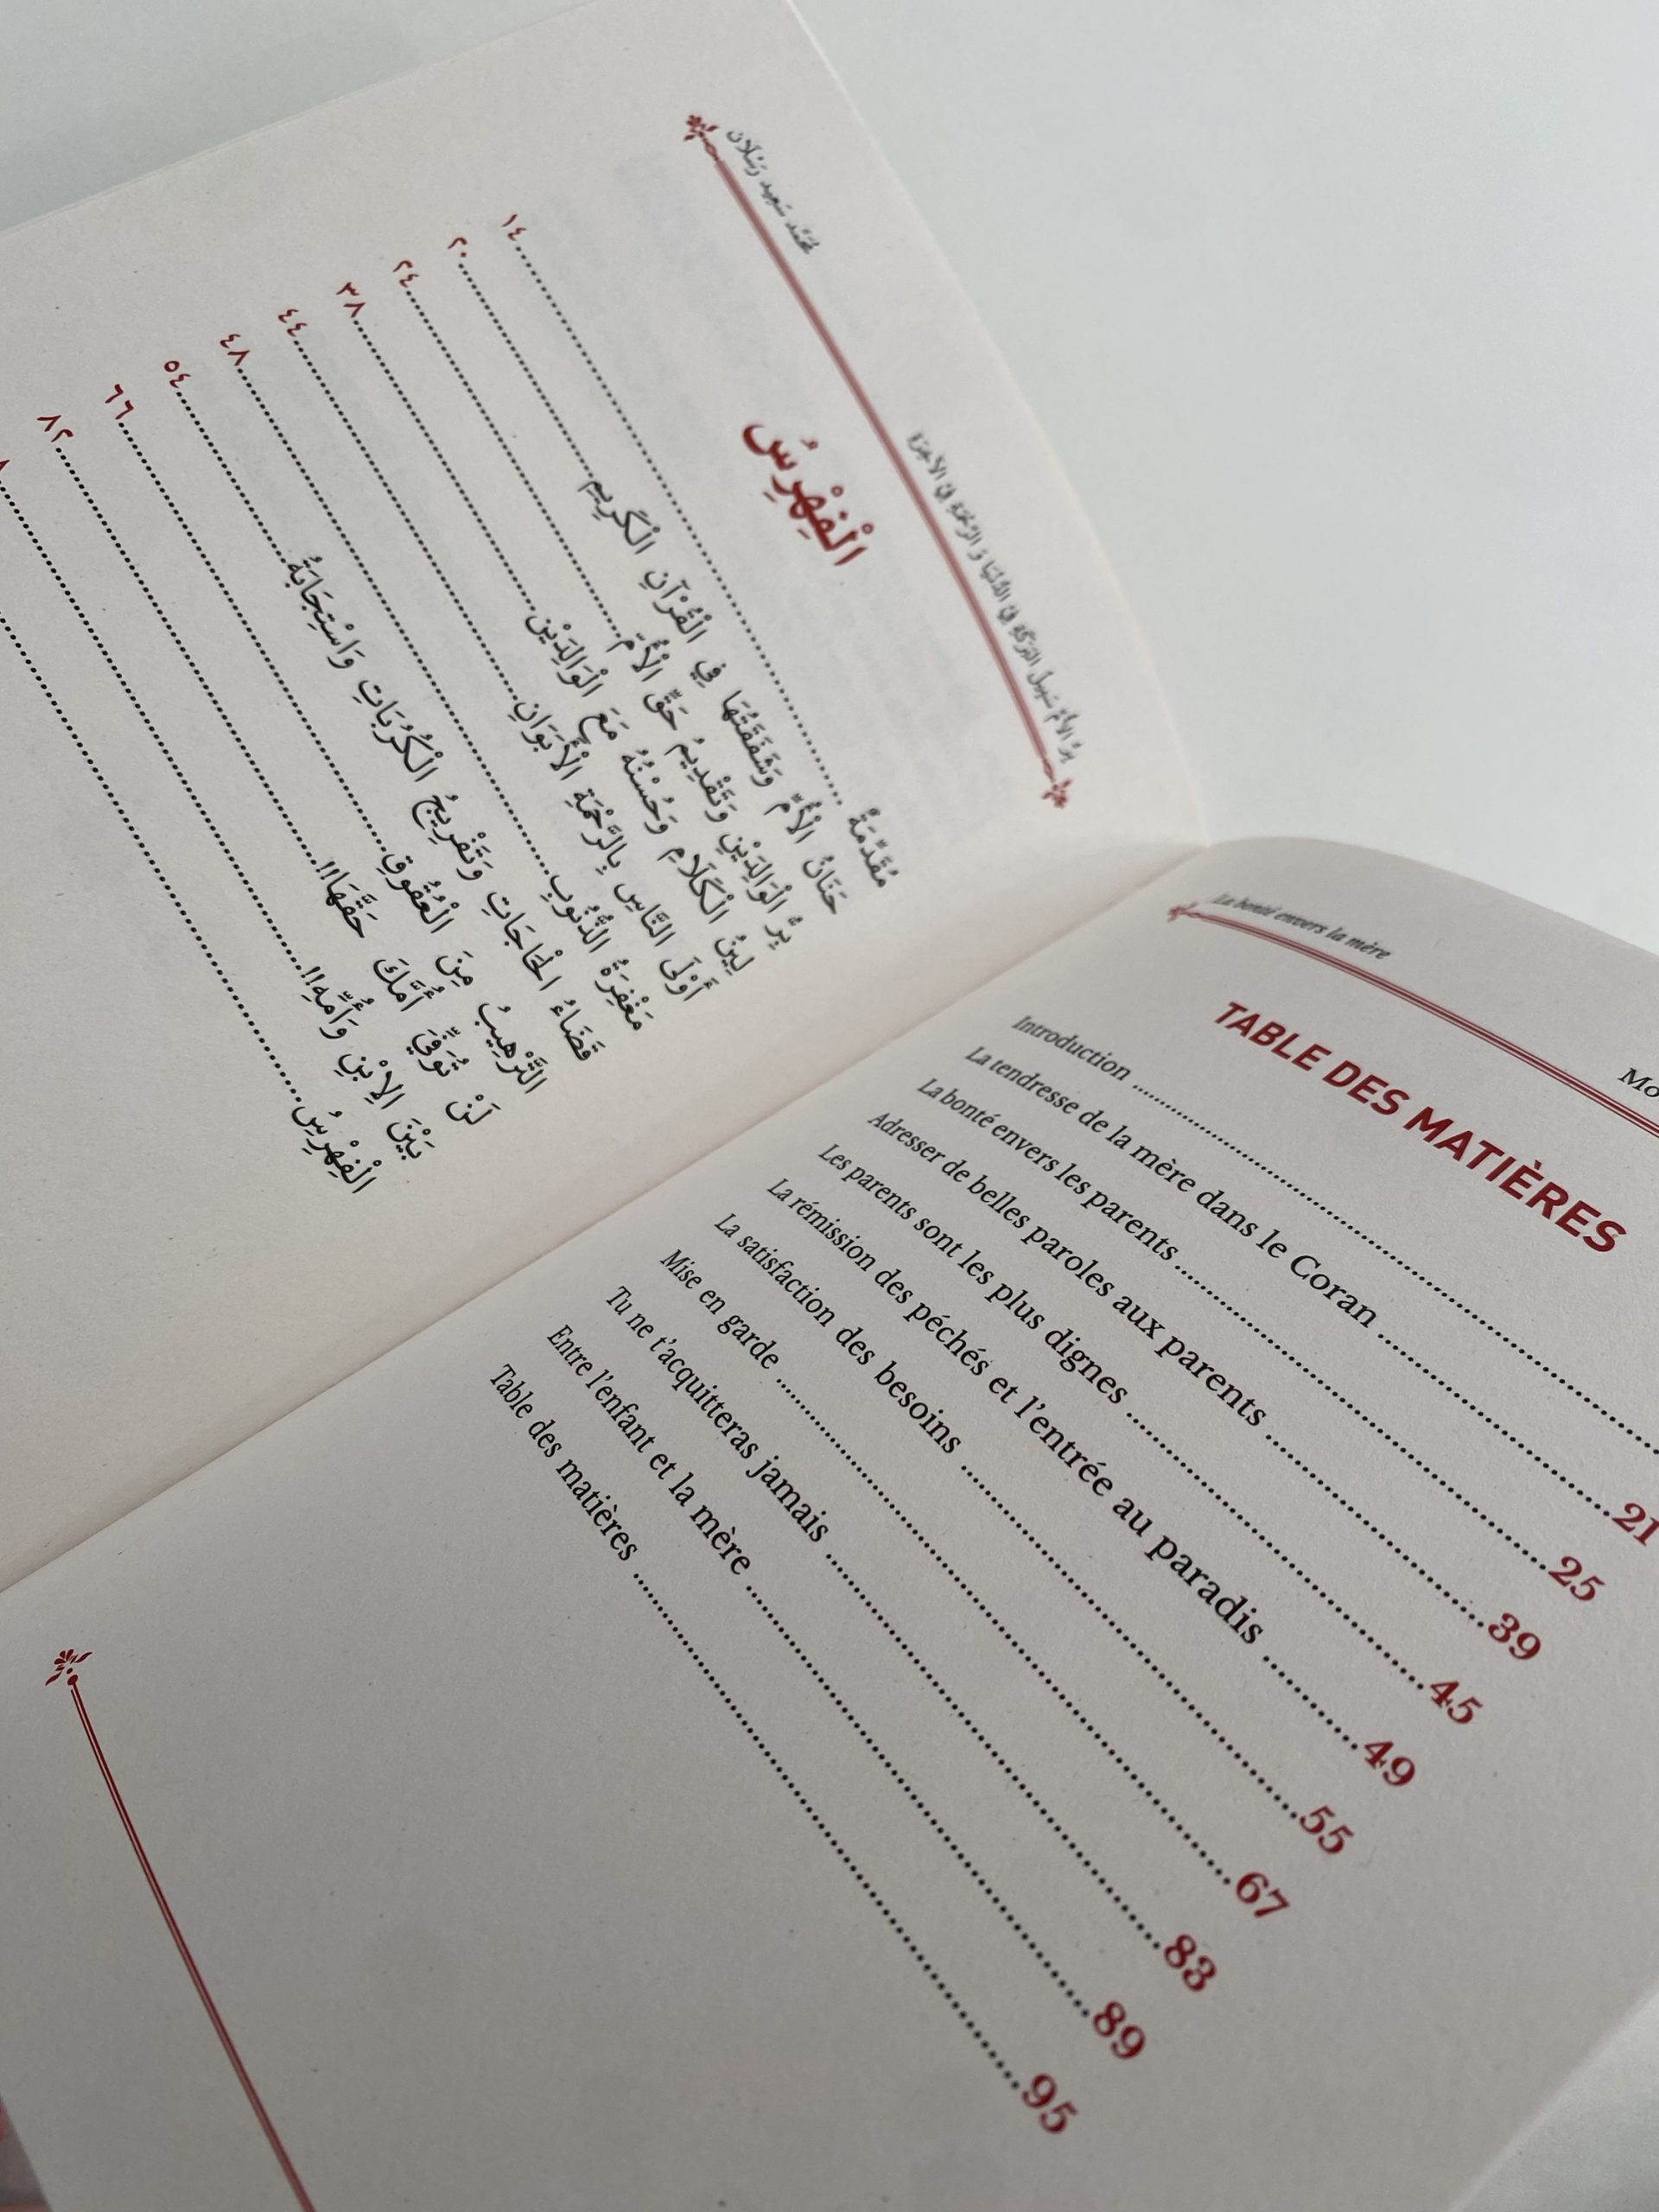 مُحَمَّد سَعِيد رَسْلَان
بِرُّ الْأُمِّ سَبِيلُ الْبَرَكَةِ فِي الدُّنْيَا وَ الرَّحْمَةِ فِي الْآخِرَةِ
الْفِهْرِسُ
مُقَدِّمَةٌ ١٤
حَنَانُ الْأُمِّ وَشَفَقَتُهَا فِي الْقُرْآنِ الْكَرِيمِ ٢٠
بِرُّ الْوَالِدَيْنِ وَتَقْدِيمُ حَقِّ الْأُمِّ ٢٤
لِينُ الْكَلَامِ وَحُسْنُهُ مَعَ الْوَالِدَيْنِ ٣٨
أَوْلَى النَّاسِ بِالرَّحْمَةِ الْأَبَوَانِ ٤٤
مَغْفِرَةُ الذُّنُوبِ ٤٨
قَضَاءُ الْحَاجَاتِ وَتَفْرِيجُ الْكُرُبَاتِ وَاسْتِجَابَةُ ٥٤
التَّرْهِيبُ مِنَ الْعُقُوقِ ٦٦
لَنْ تُوَفِّيَ أُمَّكَ حَقَّهَا!! ٨٢
بَيْنَ الِابْنِ وَأُمِّهِ!!
الْفِهْرِسُ
La bonté envers la mère
Mo
TABLE DES MATIÈRES
Introduction
La tendresse de la mère dans le Coran 21
La bonté envers les parents 25
Adresser de belles paroles aux parents 39
Les parents sont les plus dignes 45
La rémission des péchés et l'entrée au paradis 49
La satisfaction des besoins 55
Mise en garde 67
Tu ne t'acquitteras jamais 83
Entre l'enfant et la mère 89
Table des matières 95